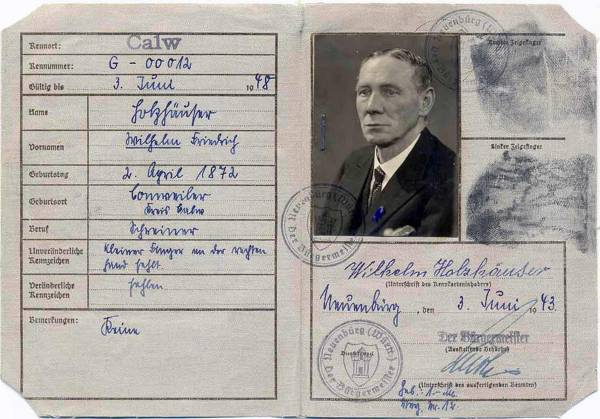 Kennort: Calw
Kennummer: G-00012
Gültig bis 3. Juni 1948
Name Holzhäuser
Vornamen Wilhelm Friedrich
Geburtstag 2. April 1872
Geburtsort Conweiler
Kreis Calw
Beruf Schreiner
Unveränderliche Kennzeichen Kleiner Finger an der rechten
Hand fehlt
Veränderliche Kennzeichen fehlen
Bemerkungen: Keine
Rechter Zeigefinger
Linker Zeigefinger
Neuenbürg (Württ)
Der Bürgermeister
Wilhelm Holzhäuser
(Unterschrift des Kennkarteninhabers)
Neuenbürg, den 3. Juni 1943.
Der Bürgermeister
(Ausstellende Behörde)
(Unterschrift des ausfertigenden Beamten)
Neuenbürg (Württ)
Dienstsiegel
Der Bürgermeister
Geb: 1.-M.
Nr. 12